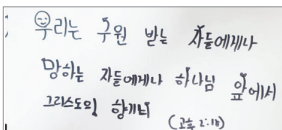 우리는 구원 받는 자들에게나
망하는 자들에게나 하나님 앞에서
그리스도의 향기니
(고후 2:18)